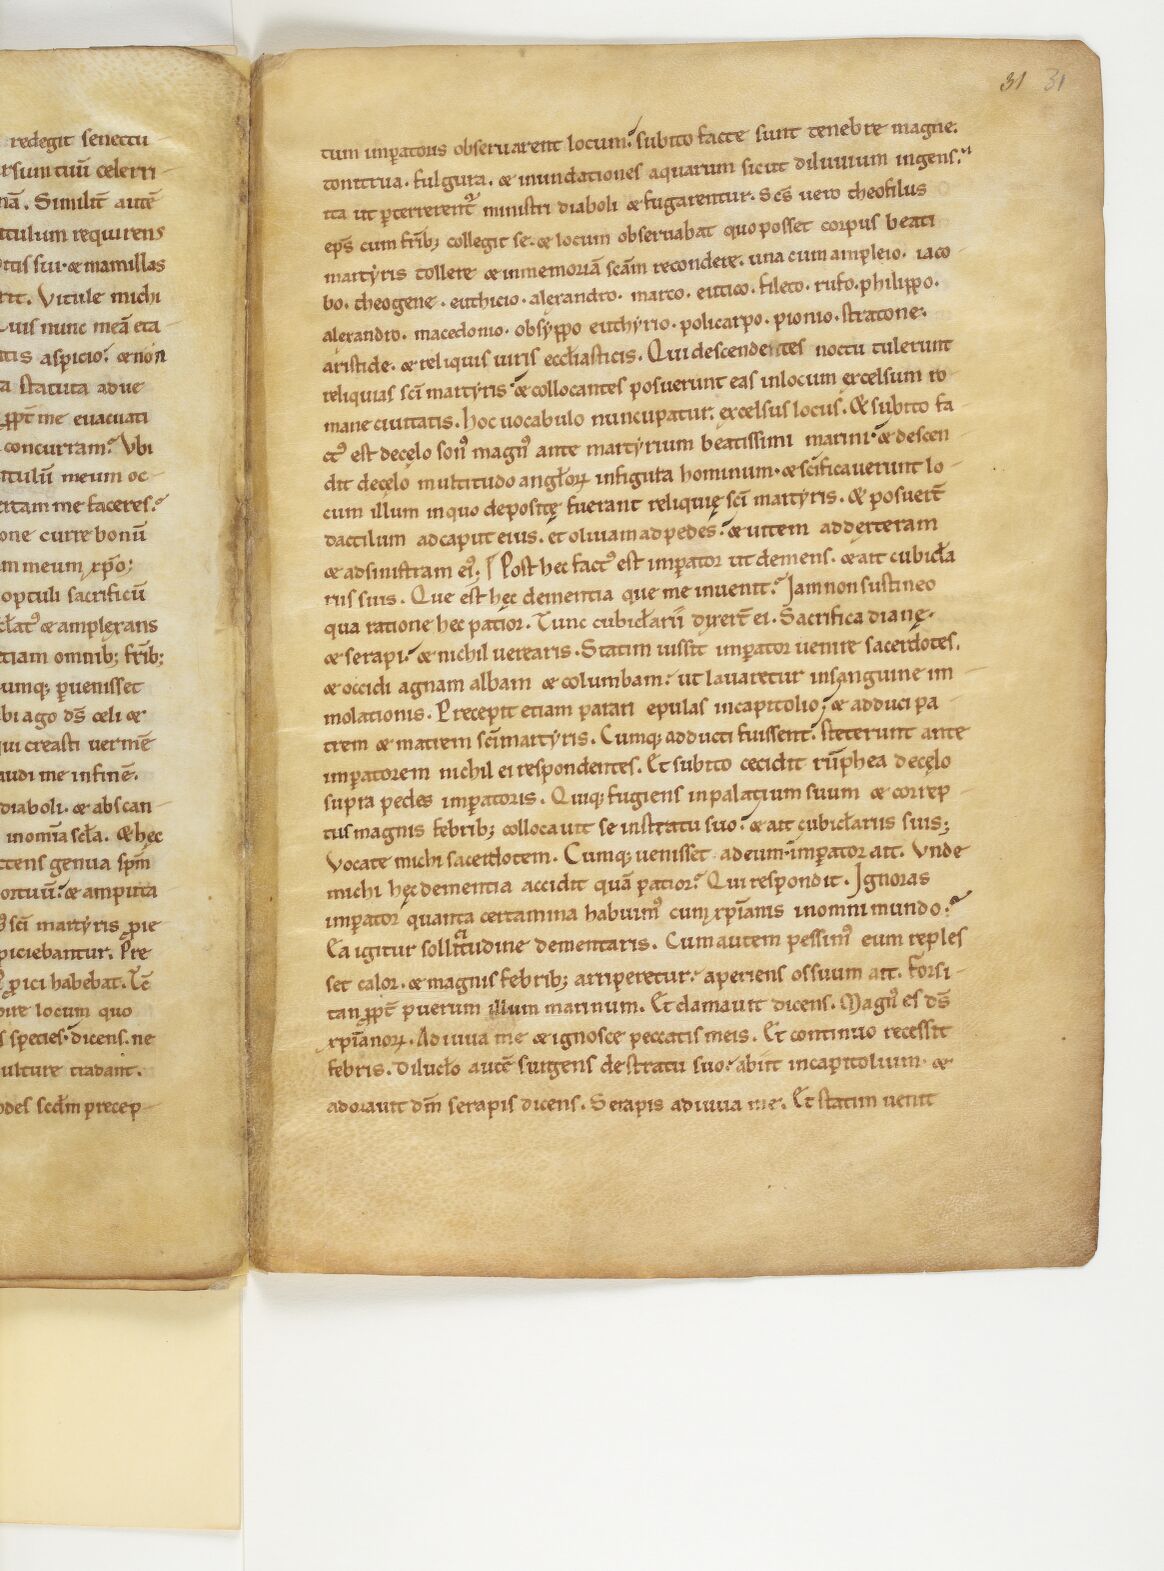 redegit senectu
rsum tuũ celerri
nã. Similit̃ autẽ
itulum requirens
ntis sui· & mamillas
rit. Vitule michi
Quis nunc meã eta
tis aspicio? & non
a statuta adue
ꝓpt̃ me euacuati
concurram? Vbi
itulũ meum oc
eritam me faceres?
one curre bonũ
m meum xp̃o;
optuli sacrificiũ
cłat᷒ & amplexans
etiam omnib; fr̃ib;
umq; ꝑuenisset
bi ago d̃s celi &
qui creasti uermẽ
audi me in finẽ.
diaboli. & abscan
in om̃ia scła. & hęc
ctens genua sp̃m
ortuũ? & amputa
sc̃i martyris pie
piciebantur. Pre
ꝓici habebat. Tc̃
ire locum quo
s species· dicens. ne
ulture tradant.
odes scd̃m precep
31 31
tum imꝑatoris obseruarent locum? subito facte sunt tenebre magne.
tonitrua. fulgura. & inundationes aquarum sicut diluuium ingens?
ita ut ꝑterrerent᷒ ministri diaboli & fugarentur. Sc̃s uero theofilus
ep̃s cum fr̃ib; collegit se. & locum obseruabat quo posset corpus beati
martyris tollere & in memoriã sc̃am recondere. una cum ampleio. iaco
bo. theogene. euthicio. alexandro. marco. euticо. fileto. rufo. philippo.
alexandro. macedonio. obsyppo euthyrio. policarpo. pionio. stratone.
aristide. & reliquis uiris ecclìasticis. Qui descendentes noctu tulerunt
reliquias sc̃i martyris? & collocantes posuerunt eas in locum excelsum ro
mane ciuitatis. hoc uocabulo nuncupatur. excelsus locus. & subito fa
ct᷒ est de cęlo son᷒ magn᷒ ante martyrium beatissimi marini· & descen
dit de cęlo multitudo angłoꝝ in figura hominum· & sc̃ificauerunt lo
cum illum in quo depositę fuerant reliquię sc̃i martyris. & posuer̃t
dactilum ad caput eius. et oliuam ad pedes. & uitem ad dexteram
& ad sinistram ei᷒; Post hec fact᷒ est imꝑator ut demens. & ait cubicła
riis suis. Que est hęc dementia que me inuenit? Iam non sustineo
qua ratione hec patior. Tunc cubicłarii dixer̃t ei. Sacrifica dianę.
& serapi? & nichil uerearis. Statim iussit imꝑator uenire sacerdotes.
& occidi agnam albam & columbam? ut lauaretur in sanguine im
molationis. Precepit etiam parari epulas in capitolio; & adduci pa
trem & matrem sc̃i martyris. Cumq; adducti fuissent? steterunt ante
imꝑatorem nichil ei respondentes. Et subito cecidit rũphea de cęlo
supra pedes imꝑatoris. Quiq; fugiens in palatium suum & correp
tus magnis febrib; collocauit se in stratu suo? & ait cubicłariis suis;
Vocate michi sacerdotem. Cumq; uenisset ad eum· imꝑator ait. Vnde
michi hęc dementia accidit quã patior? Qui respondit. Ignoras
imꝑator quanta certamina habuim᷒ cum xp̃ianis in om̃i mundo?
Ea igitur sollitudine dementaris. Cum autem pessim᷒ eum reples
set calor. & magnis febrib; arriperetur? aperiens os suum ait. Forsi
tan ꝓpt̃ puerum illum marinum. Et clamauit dicens. Magn᷒ es d̃s
xp̃ianoꝝ. Adiuua me & ignosce peccatis meis. Et continuo recessit
febris. Dilucło autẽ surgens de stratu suo? abiit in capitolium· &
adorauit dm̃ serapis dicens. Serapis adiuua me. Et statim uenit